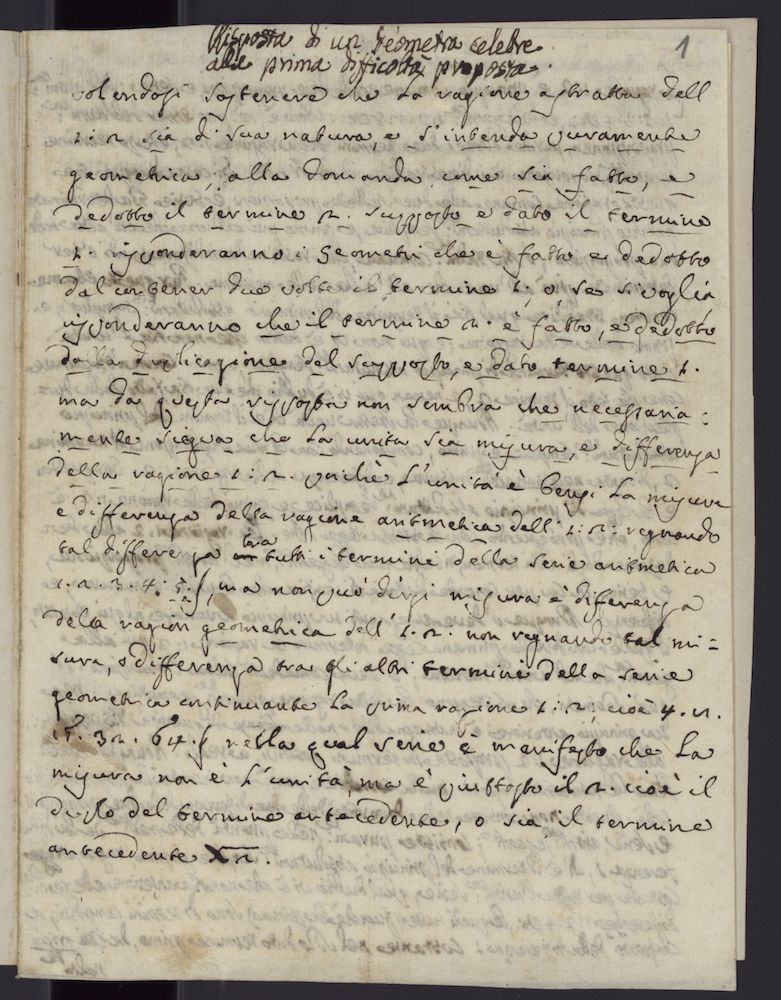 Risposta di un Geometra celebre
alle prima difficoltà proposta.
1
volendosi sostenere che la ragione astratta dell
1: 2 sia di sua natura, e s'intenda puramente
geometrica; alla domanda come sia fatto, e
dedotto il termine 2. supposto e dato il termine
1. risponderanno i Geometri che è fatto e dedotto
dal contener due volte il termine 1; o, se si voglia
risponderanno che il termine 2. è fatto, e dedotto
dalla duplicazione del supposto, e dato termine 1.
ma da questa risposta non sembra che necessaria:
mente siegua che la unita sia misura, e differenza
della ragione 1: 2. poiché l'unità è bensi la misura
e differenza della ragione aritmetica dell' 1: 2: regnando
tal differenza tra tutti i termini della serie aritmetica
1. 2. 3. 4. 5. , ma non può dirsi misura e differenza
della ragion geometrica dell' 1. 2. non regnando tal mi=
sura, o differenza tra gli altri termini della serie
geometrica continuante la prima ragione 1: 2; cioè 4.
32. 64. nella qual serie è manifesto che la
misura non è l'unità, ma è piuttosto il 2. cioè il
duplo del termine antecedente, o sia il termine
antecedente X 2.